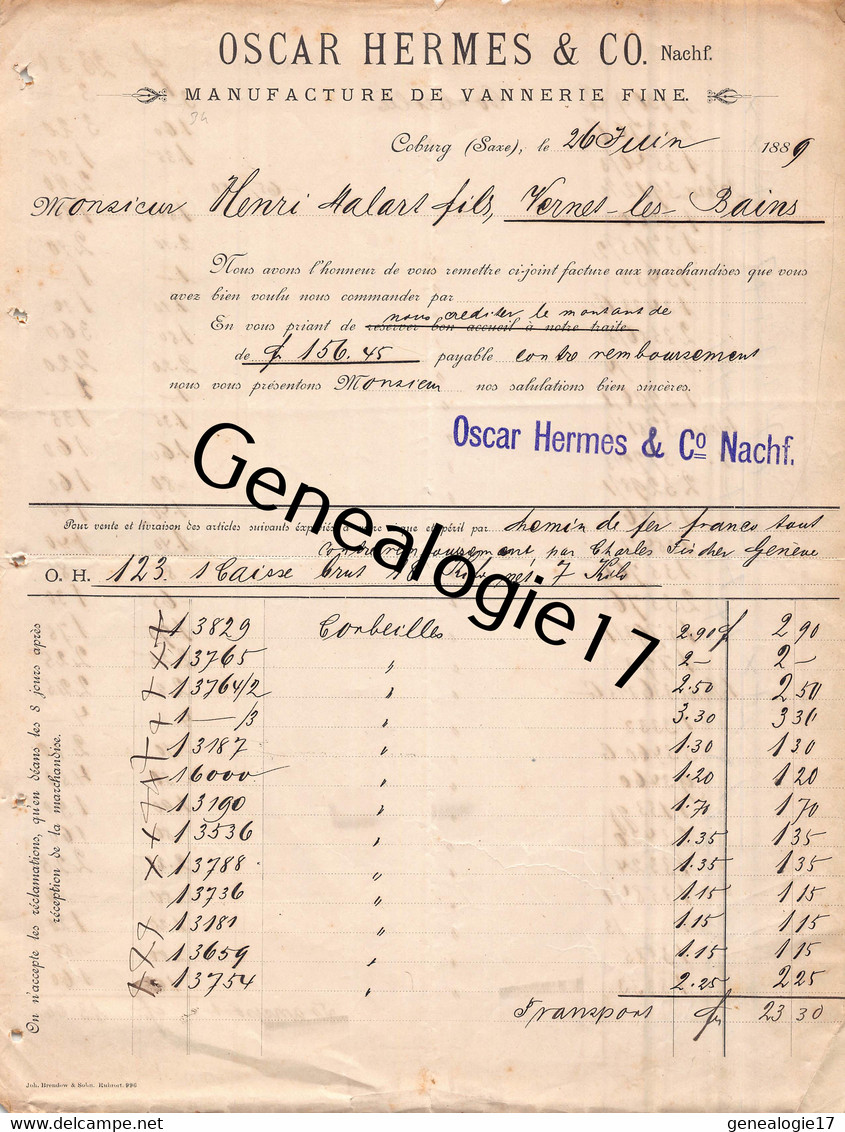 OSCAR HERMES & CO. Nachf.
MANUFACTURE DE VANNERIE FINE.
Coburg (Saxe), le 26 Juin 1889
Monsieur Henri Malart fils, Vernet-les-Bains
Nous avons l'honneur de vous remettre ci-joint facture aux marchandises que vous
avez bien voulu nous commander par
nous créditer le montant de
En vous priant de réserver bon accueil à notre traite
de f 156.45 payable contre remboursement
nous vous présentons Monsieur nos salutations bien sincères.
Oscar Hermes & Co Nachf.
Genealogie17
Pour vente et livraison des articles suivants expédiés à votre risque et péril par chemin de fer franco tout
contre remboursement, par Charles Fischer Genève
O. H. 123. 1 Caisse brut Kilo, net 7 Kilo
1 3829 Corbeilles 2.90 f 2 90
1 3765 " 2- 2 -
1 3764/2 " 2.50 2 50
1 — /3 " 3.30 3 30
1 3187 " 1.30 1 30
1 6000 " 1.20 1 20
1 3190 " 1.70 1 70
1 3536 " 1.35 1 35
1 3788 " 1.35 1 35
1 3736 " 1.15 1 15
1 3181 " 1.15 1 15
1 3659 " 1.15 1 15
1 3754 " 2.25 2 25
Transport fr 23 30
On n'accepte les réclamations, qu'en déans les 8 jours après
réception de la marchandise.
Joh. Brendow & Sohn. Ruhrort. 996
delcampe.net
genealogie17